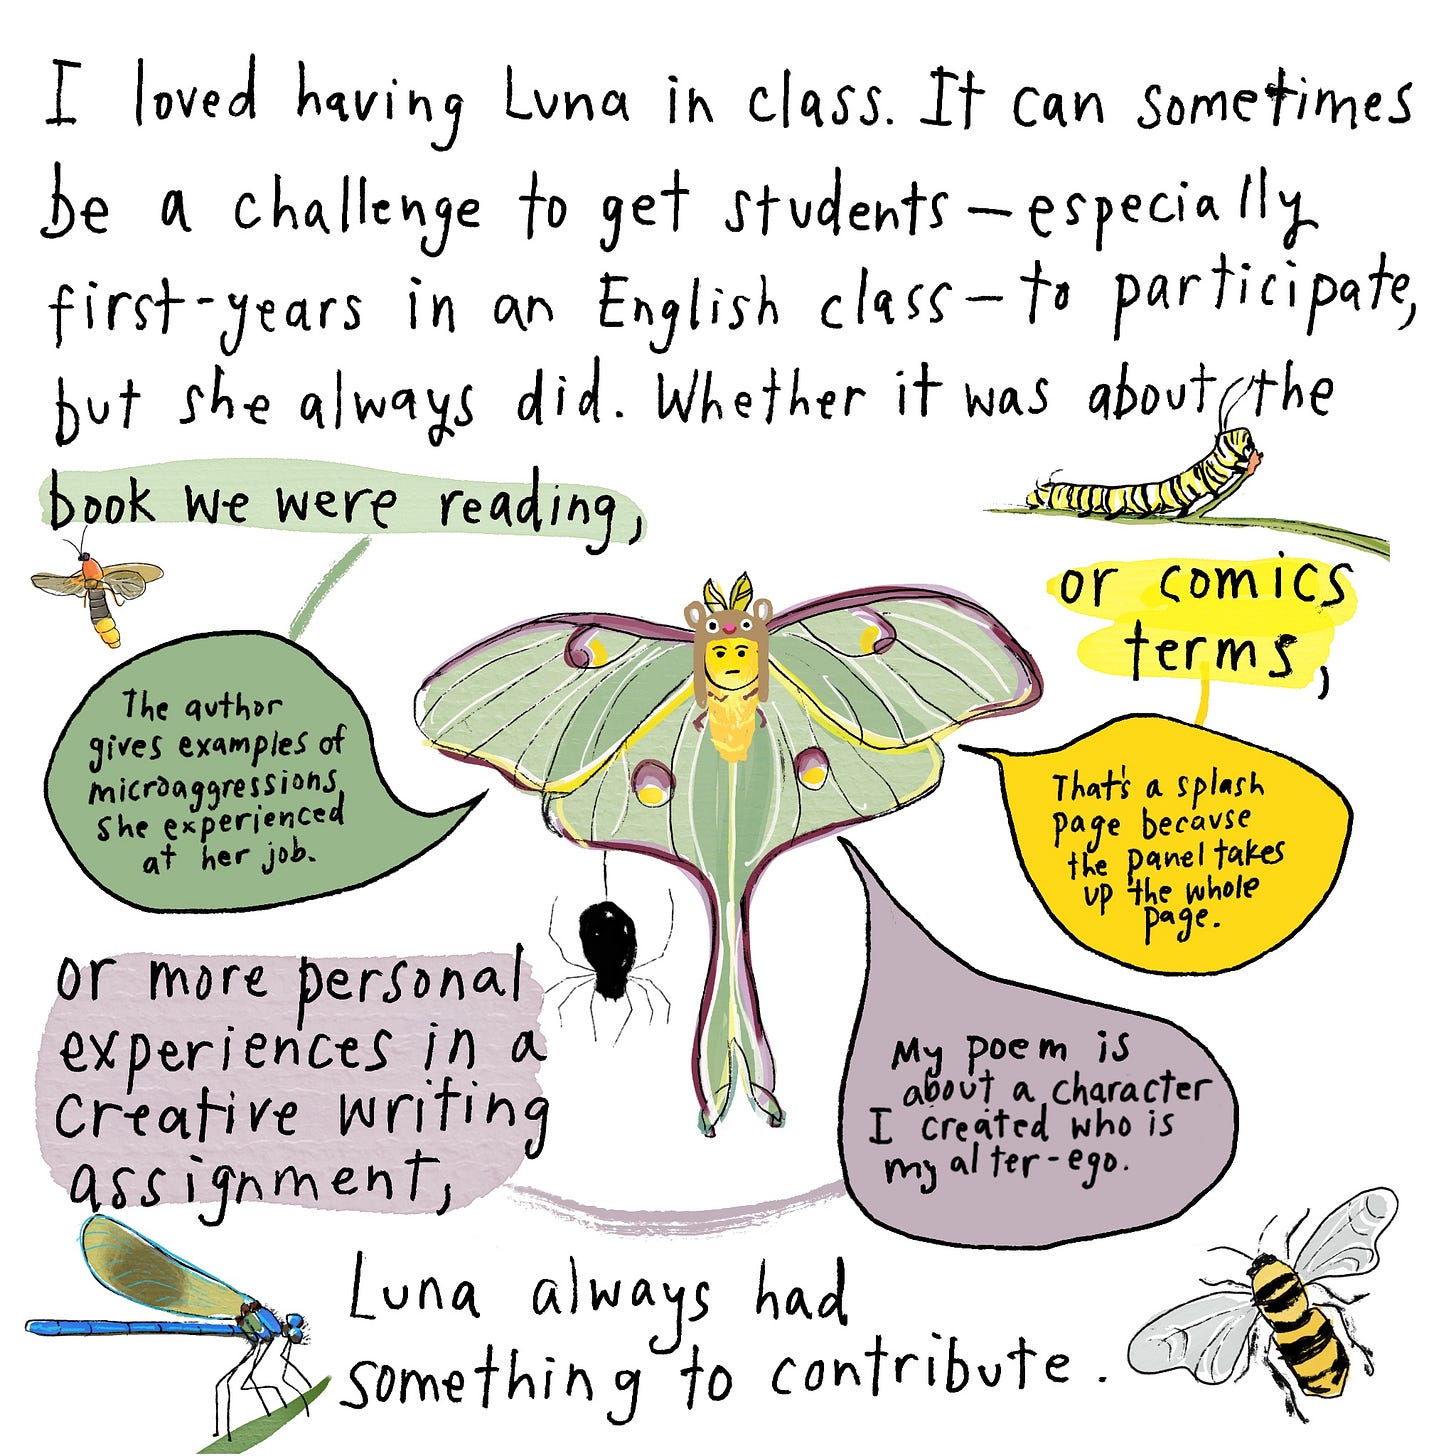 I loved having Luna in class. It can sometimes
be a challenge to get students — especially
first-years in an English class — to participate,
but she always did. Whether it was about the
book we were reading,
The author
gives examples of
microaggressions
she experienced
at her job.
or comics
terms,
That's a splash
page because
the panel takes
up the whole
page.
or more personal
experiences in a
creative writing
assignment,
My poem is
about a character
I created who is
my alter-ego.
Luna always had
something to contribute.